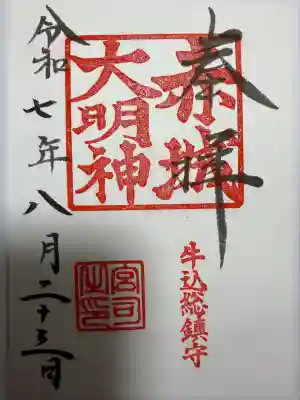 奉拝
赤城
大明神
牛込総鎮守
令和七年八月二十三日
宮司
之印